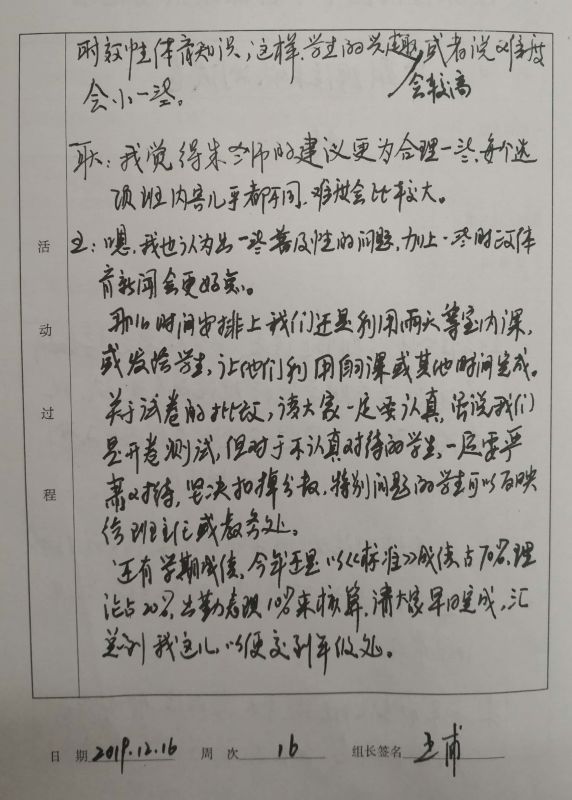 时效性体育知识,这样,学生的兴趣会较高或者说难度
会小一些。
耿:我觉得朱老师的建议更为合理一些,每个选
项班内容几乎都不同,难度会比较大。
王:嗯,我也认为出一些普及性的问题,加上一些时政体
育新闻会更好点。
那么时间安排上我们还是利用雨天等室内课,
或发给学生,让他们利用自习课或其他时间完成。
关于试卷的批改,请大家一定要认真,虽说我们
是开卷测试,但对于不认真对待的学生,一定要严
肃对待,坚决扣掉分数,特别问题的学生可以反映
给班主任或教务处。
还有学期成绩,今年还是以《标准》成绩占70%,理
论占20%,出勤表现10%来核算,请大家早日完成,汇
总到我这儿,以便交到年级处。
活动过程
日期 2019.12.16 周次 16 组长签名 王甫